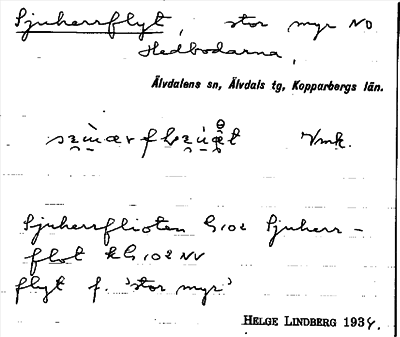 Sjuherrflyt, stor myr NO
Hedbodarna,
Älvdalens sn, Älvdals tg, Kopparbergs län.
Vmk.
Sjuherrflioten G102 Sjuherr-
flot kG102 NV
flyt f. 'stor myr'
HELGE LINDBERG 1934.